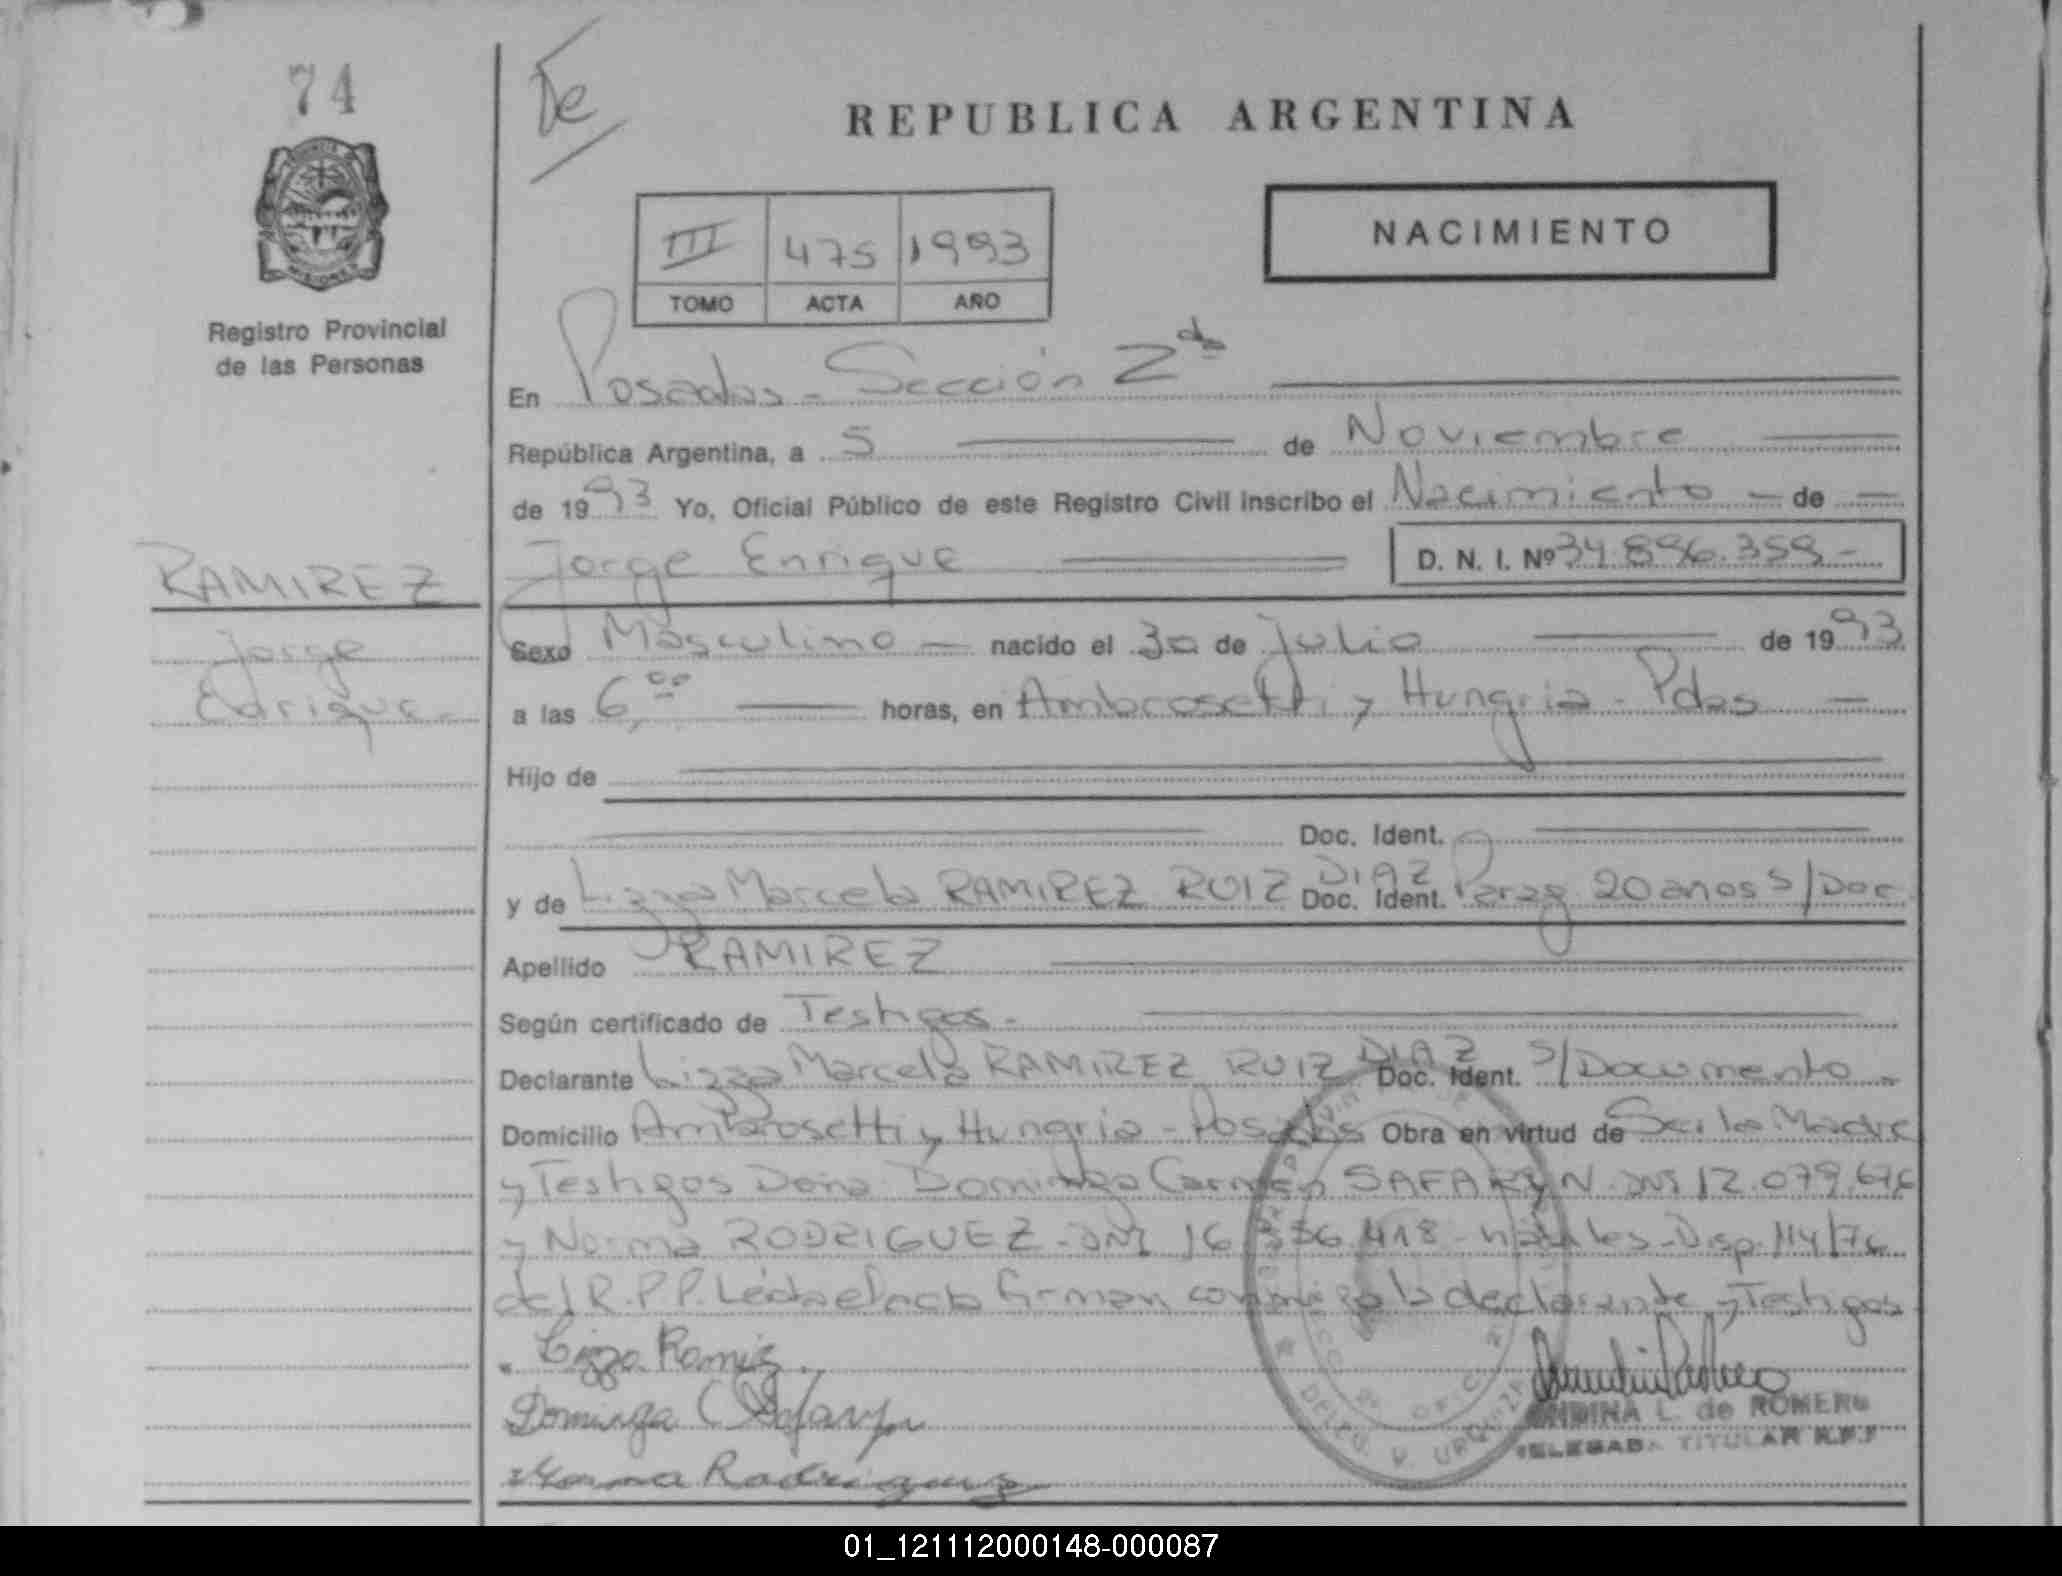 74
Te
REPUBLICA ARGENTINA
NACIMIENTO
III 475 1993
TOMO ACTA AÑO
Registro Provincial
de las Personas
En Posadas - Sección 2da
República Argentina, a 5 de Noviembre
de 1993 Yo, Oficial Público de este Registro Civil inscribo el Nacimiento - de
RAMIREZ
Jorge
Enrique.-
Jorge Enrique D. N. I. Nº 34.896.359-
Sexo Masculino nacido el 30 de Julio de 1993
a las 6,00 horas, en Ambrosetti y Hungria - Pdas
Hijo de
Doc. Ident.
y de Lizza Marcela RAMIREZ RUIZ DIAZ Doc. Ident. Parag 20 anos s/Doc.
Apellido RAMIREZ
Según certificado de Testigos -
Declarante Lizza Marcela RAMIREZ RUIZ DIAZ Doc. Ident. s/Documento -
Domicilio Ambrosetti y Hungria - Posadas Obra en virtud de Ser la Madre
y Testigos Dona Dominga Carmen SAFARYN DNI 12.079.676
y Norma RODRIGUEZ - DNI 16 418 - Disp. 114/76
del R.P.P. Leida el acta firman conmigo la declarante y Testigos
Lizza Ramirez
Dominga C Safaryn
Norma Rodriguez
L. de ROMERO
DELEGADA TITULAR R.P.P
01_121112000148-000087